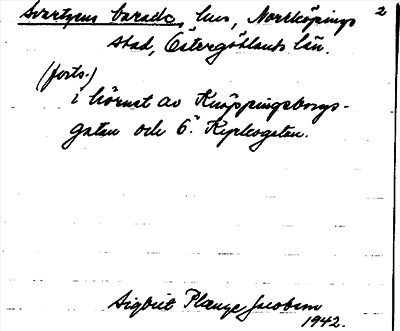 Svartzens barack, hus, Norrköpings 2
stad, Östergötlands län.
(forts.)
i hörnet av Knäppingsborgs-
gatan och Ö. Kyrkogatan.
Sigbrit Plange Jacobson
1942.